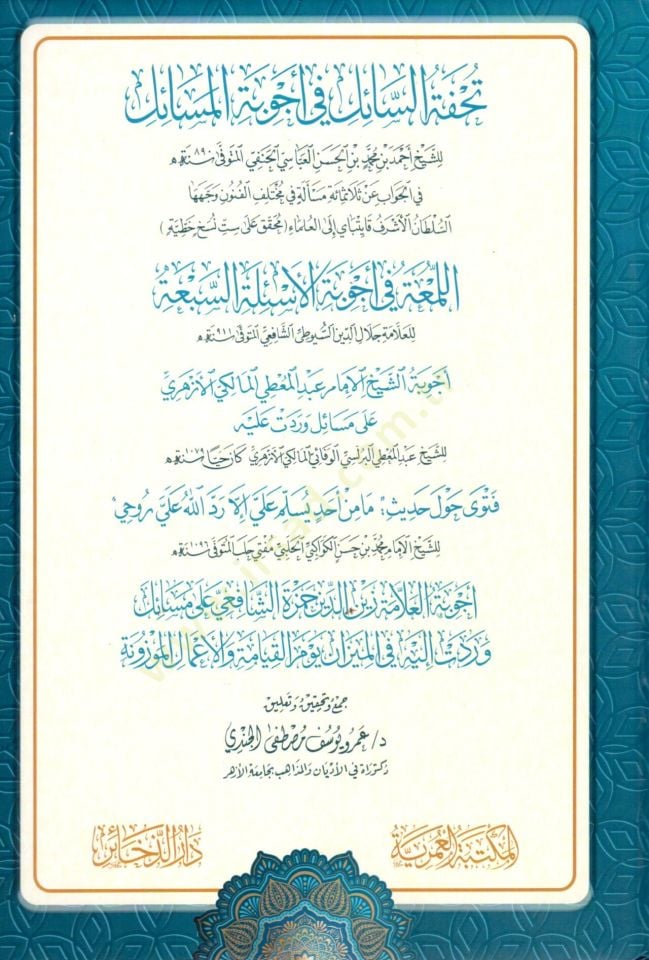 تُحْفَةُ السَّائِلِ فِي أَجْوِبَةِ المَسَائِلِ
لِلشَّيْخِ أَحْمَدَ بْنِ مُحَمَّدِ بْنِ الحَسَنِ العَبَّاسِيِّ الحَنَفِيِّ المُتَوَفَّى سَنَة ٨٩٠ هـ
فِي الجَوَابِ عَنْ ثَلَاثِمِائَةِ مَسْأَلَةٍ فِي مُخْتَلِفِ الفُنُونِ وَجَّهَهَا
السُّلْطَانُ الأَشْرَفُ قَايِتْبَاي إِلَى العُلَمَاءِ (مُحَقَّق عَلَى سِتِّ نُسَخٍ خَطِّيَّةٍ)
اللُّمْعَةُ فِي أَجْوِبَةِ الأَسْئِلَةِ السَّبْعَةِ
لِلعَلَّامَةِ جَلَالِ الدِّينِ السُّيُوطِيِّ الشَّافِعِيِّ المُتَوَفَّى سَنَة ٩١١ هـ
أَجْوِبَةُ الشَّيْخِ الإِمَامِ عَبْدِ المُعْطِي المَالِكِيِّ الأَزْهَرِيِّ
عَلَى مَسَائِلَ وَرَدَتْ عَلَيْهِ
لِلشَّيْخِ عَبْدِ المُعْطِي البُرُلُّسِيِّ الوَفَائِيِّ المَالِكِيِّ الأَزْهَرِيِّ كَانَ حَيًّا سَنَة هـ
فَتْوَى حَوْلَ حَدِيثِ: "مَا مِنْ أَحَدٍ يُسَلِّمُ عَلَيَّ إِلَّا رَدَّ اللهُ عَلَيَّ رُوحِي"
لِلشَّيْخِ الإِمَامِ مُحَمَّدِ بْنِ حَسَنٍ الكَوَاكِبِيِّ الحَلَبِيِّ مُفْتِي حَلَبَ المُتَوَفَّى سَنَة ١٠٩٦ هـ
أَجْوِبَةُ العَلَّامَةِ زَيْنِ الدِّينِ حَمْزَةَ الشَّافِعِيِّ عَلَى مَسَائِلَ
وَرَدَتْ إِلَيْهِ فِي المِيزَانِ يَوْمَ القِيَامَةِ وَالأَعْمَالِ المَوْزُونَةِ
جَمْعُ وَتَحْقِيقُ وَتَعْلِيقُ
د/ عَمْرو يُوسُف مُصْطَفَى الجُنْدِي
دُكْتُورَاه فِي الأَدْيَانِ وَالمَذَاهِبِ بِجَامِعَةِ الأَزْهَر
المَكْتَبَةُ العُمَرِيَّةُ
دَارُ الذَّخَائِرِ